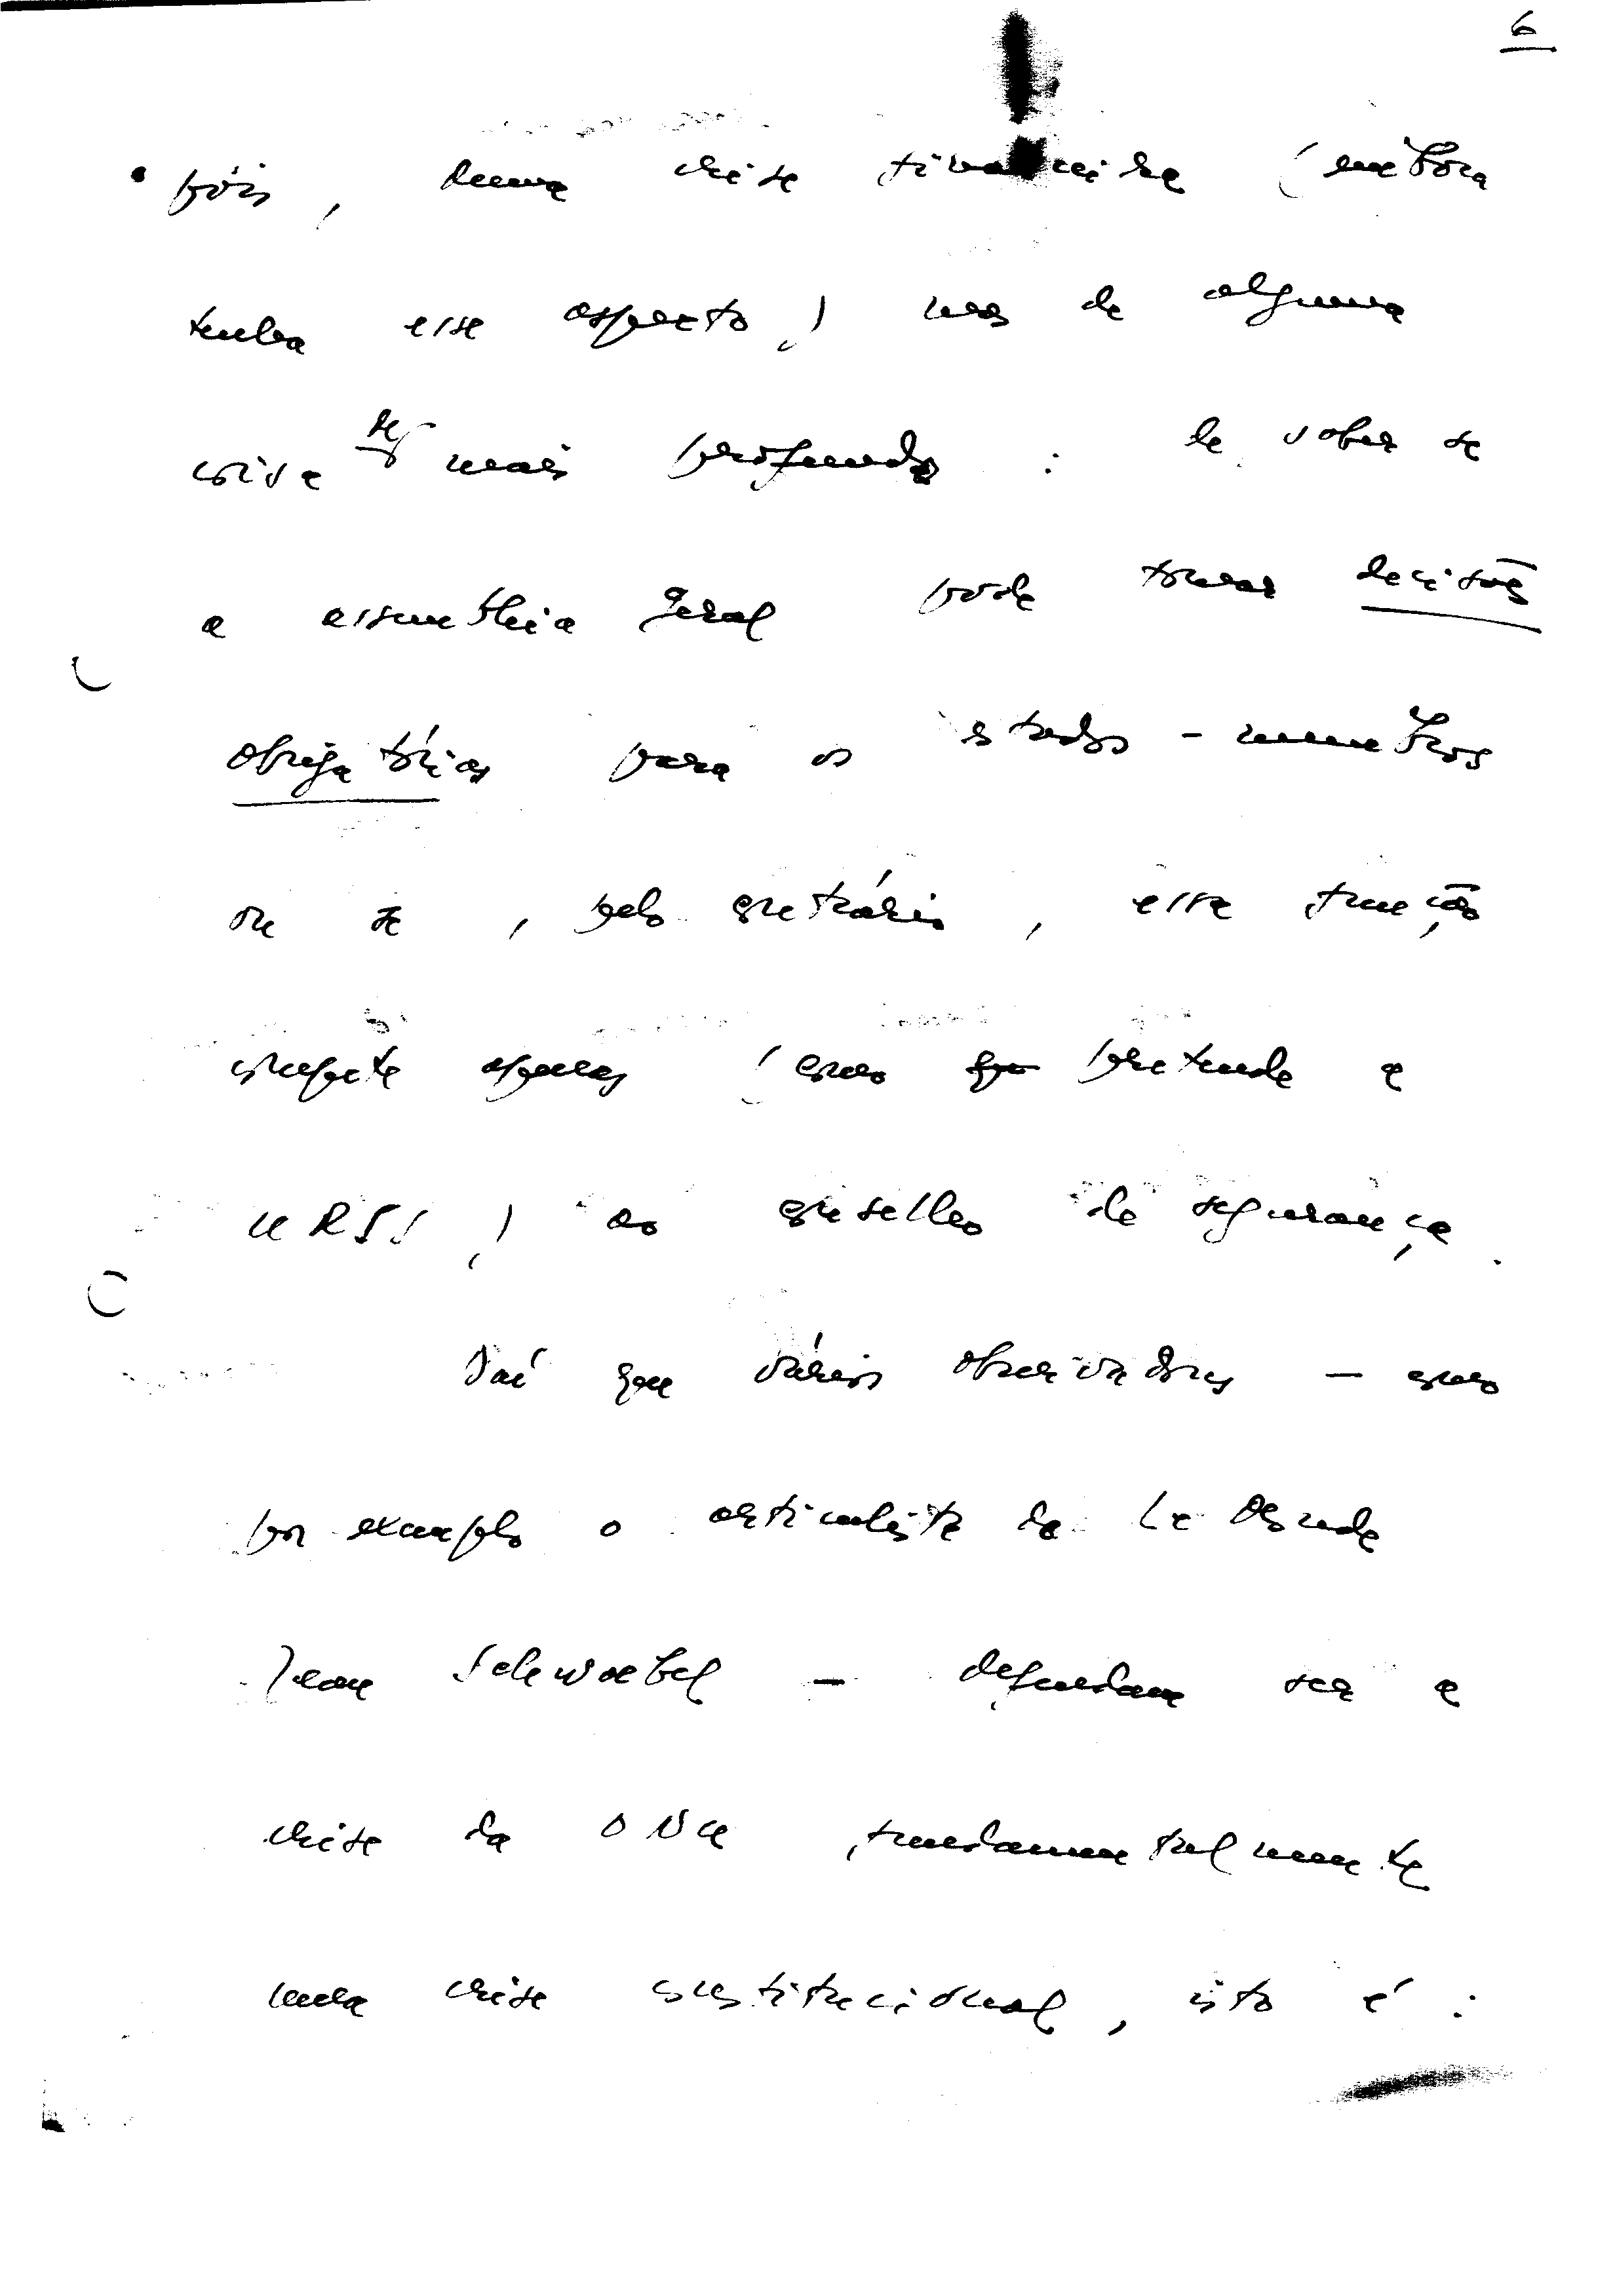 6
pois, duma crise financeira (embora
tenha esse aspecto) mas de alguma
coisa de mais profundo: de saber se
a assembleia geral pode tomar decisões
obrigatórias para os estados-membros
ou se, pelo contrário, essa função
compete apenas (como pretende a
URSS) ao conselho de segurança.
Daí que vários observadores — como
por exemplo o articulista de Le Monde
Jean Schwoebel — defendam ser a
crise da ONU fundamentalmente
uma crise constitucional, isto é: